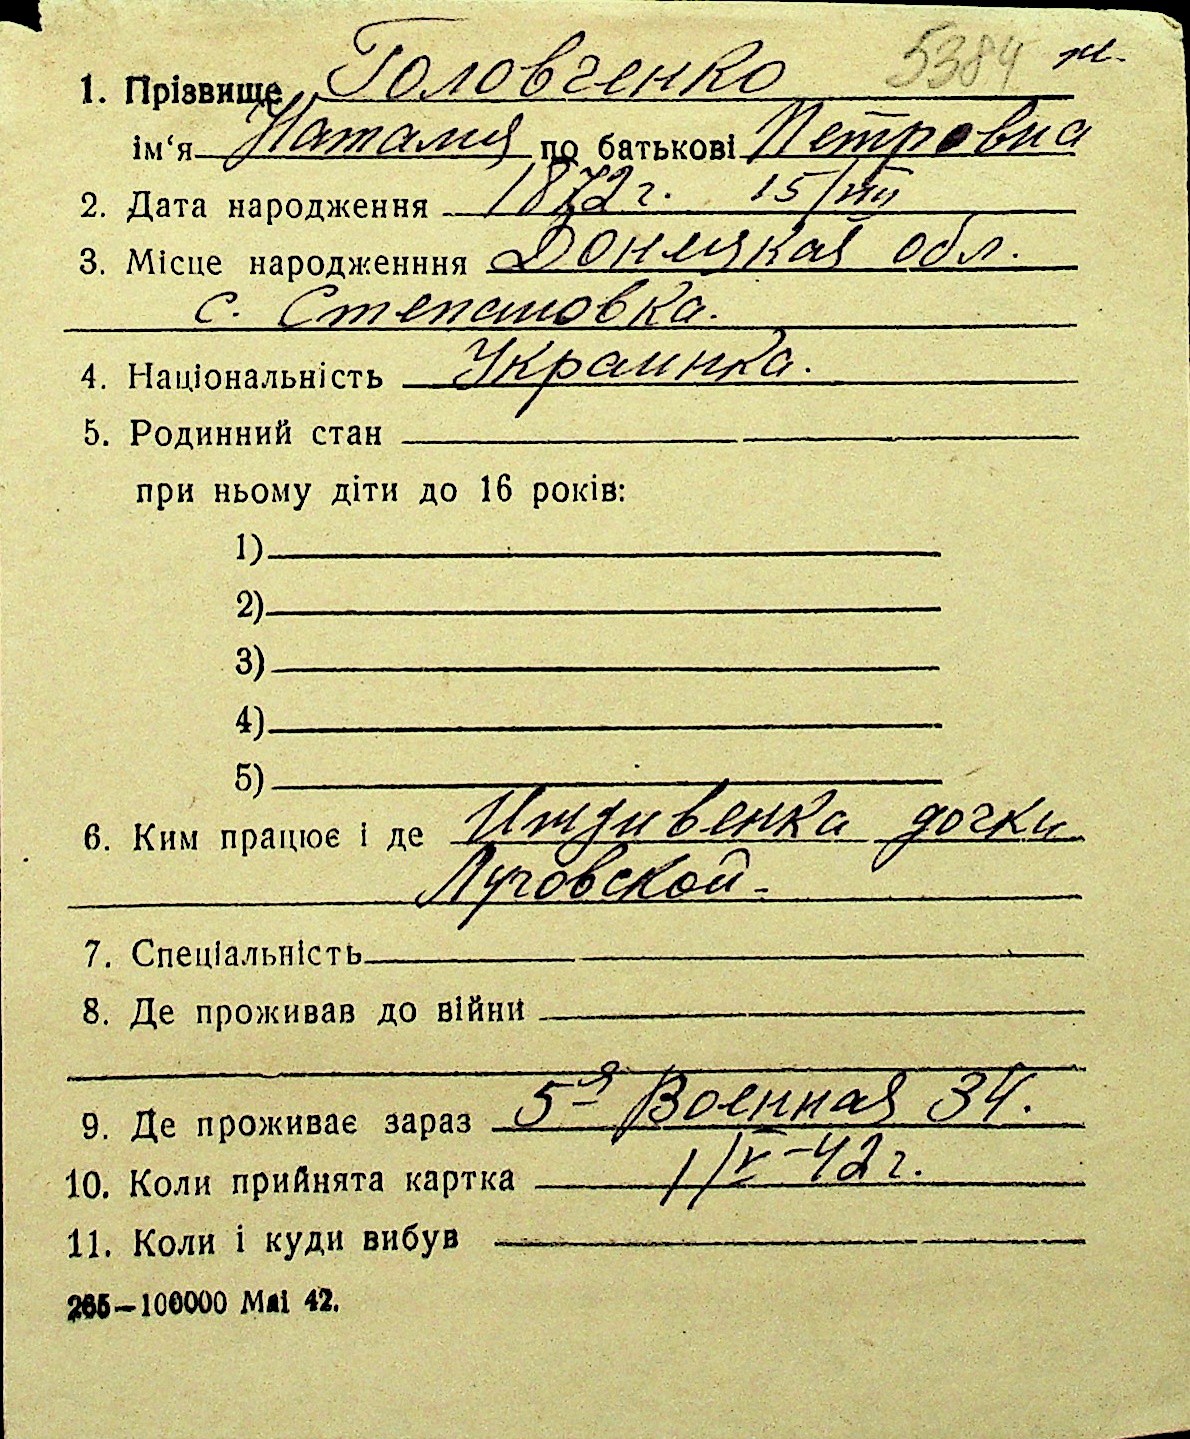 5384 ж.
1. Прізвище Головченко
ім‘я Наталия по батькові Петровна
2. Дата народження 1872 г. 15/VIII
3. Місце народженння Донецкая обл.
с. Степановка.
4. Національність Украинка.
5. Родинний стан
при ньому діти до 16 років:
1)
2)
3)
4)
5)
6. Ким працює і де Иждивенка дочки
Луговской.
7. Спеціальність
8. Де проживав до війни
9. Де проживає зараз 5-я Военная 34.
10. Коли прийнята картка 1/V-42 г.
11. Коли і куди вибув
265—100000 Маі 42.